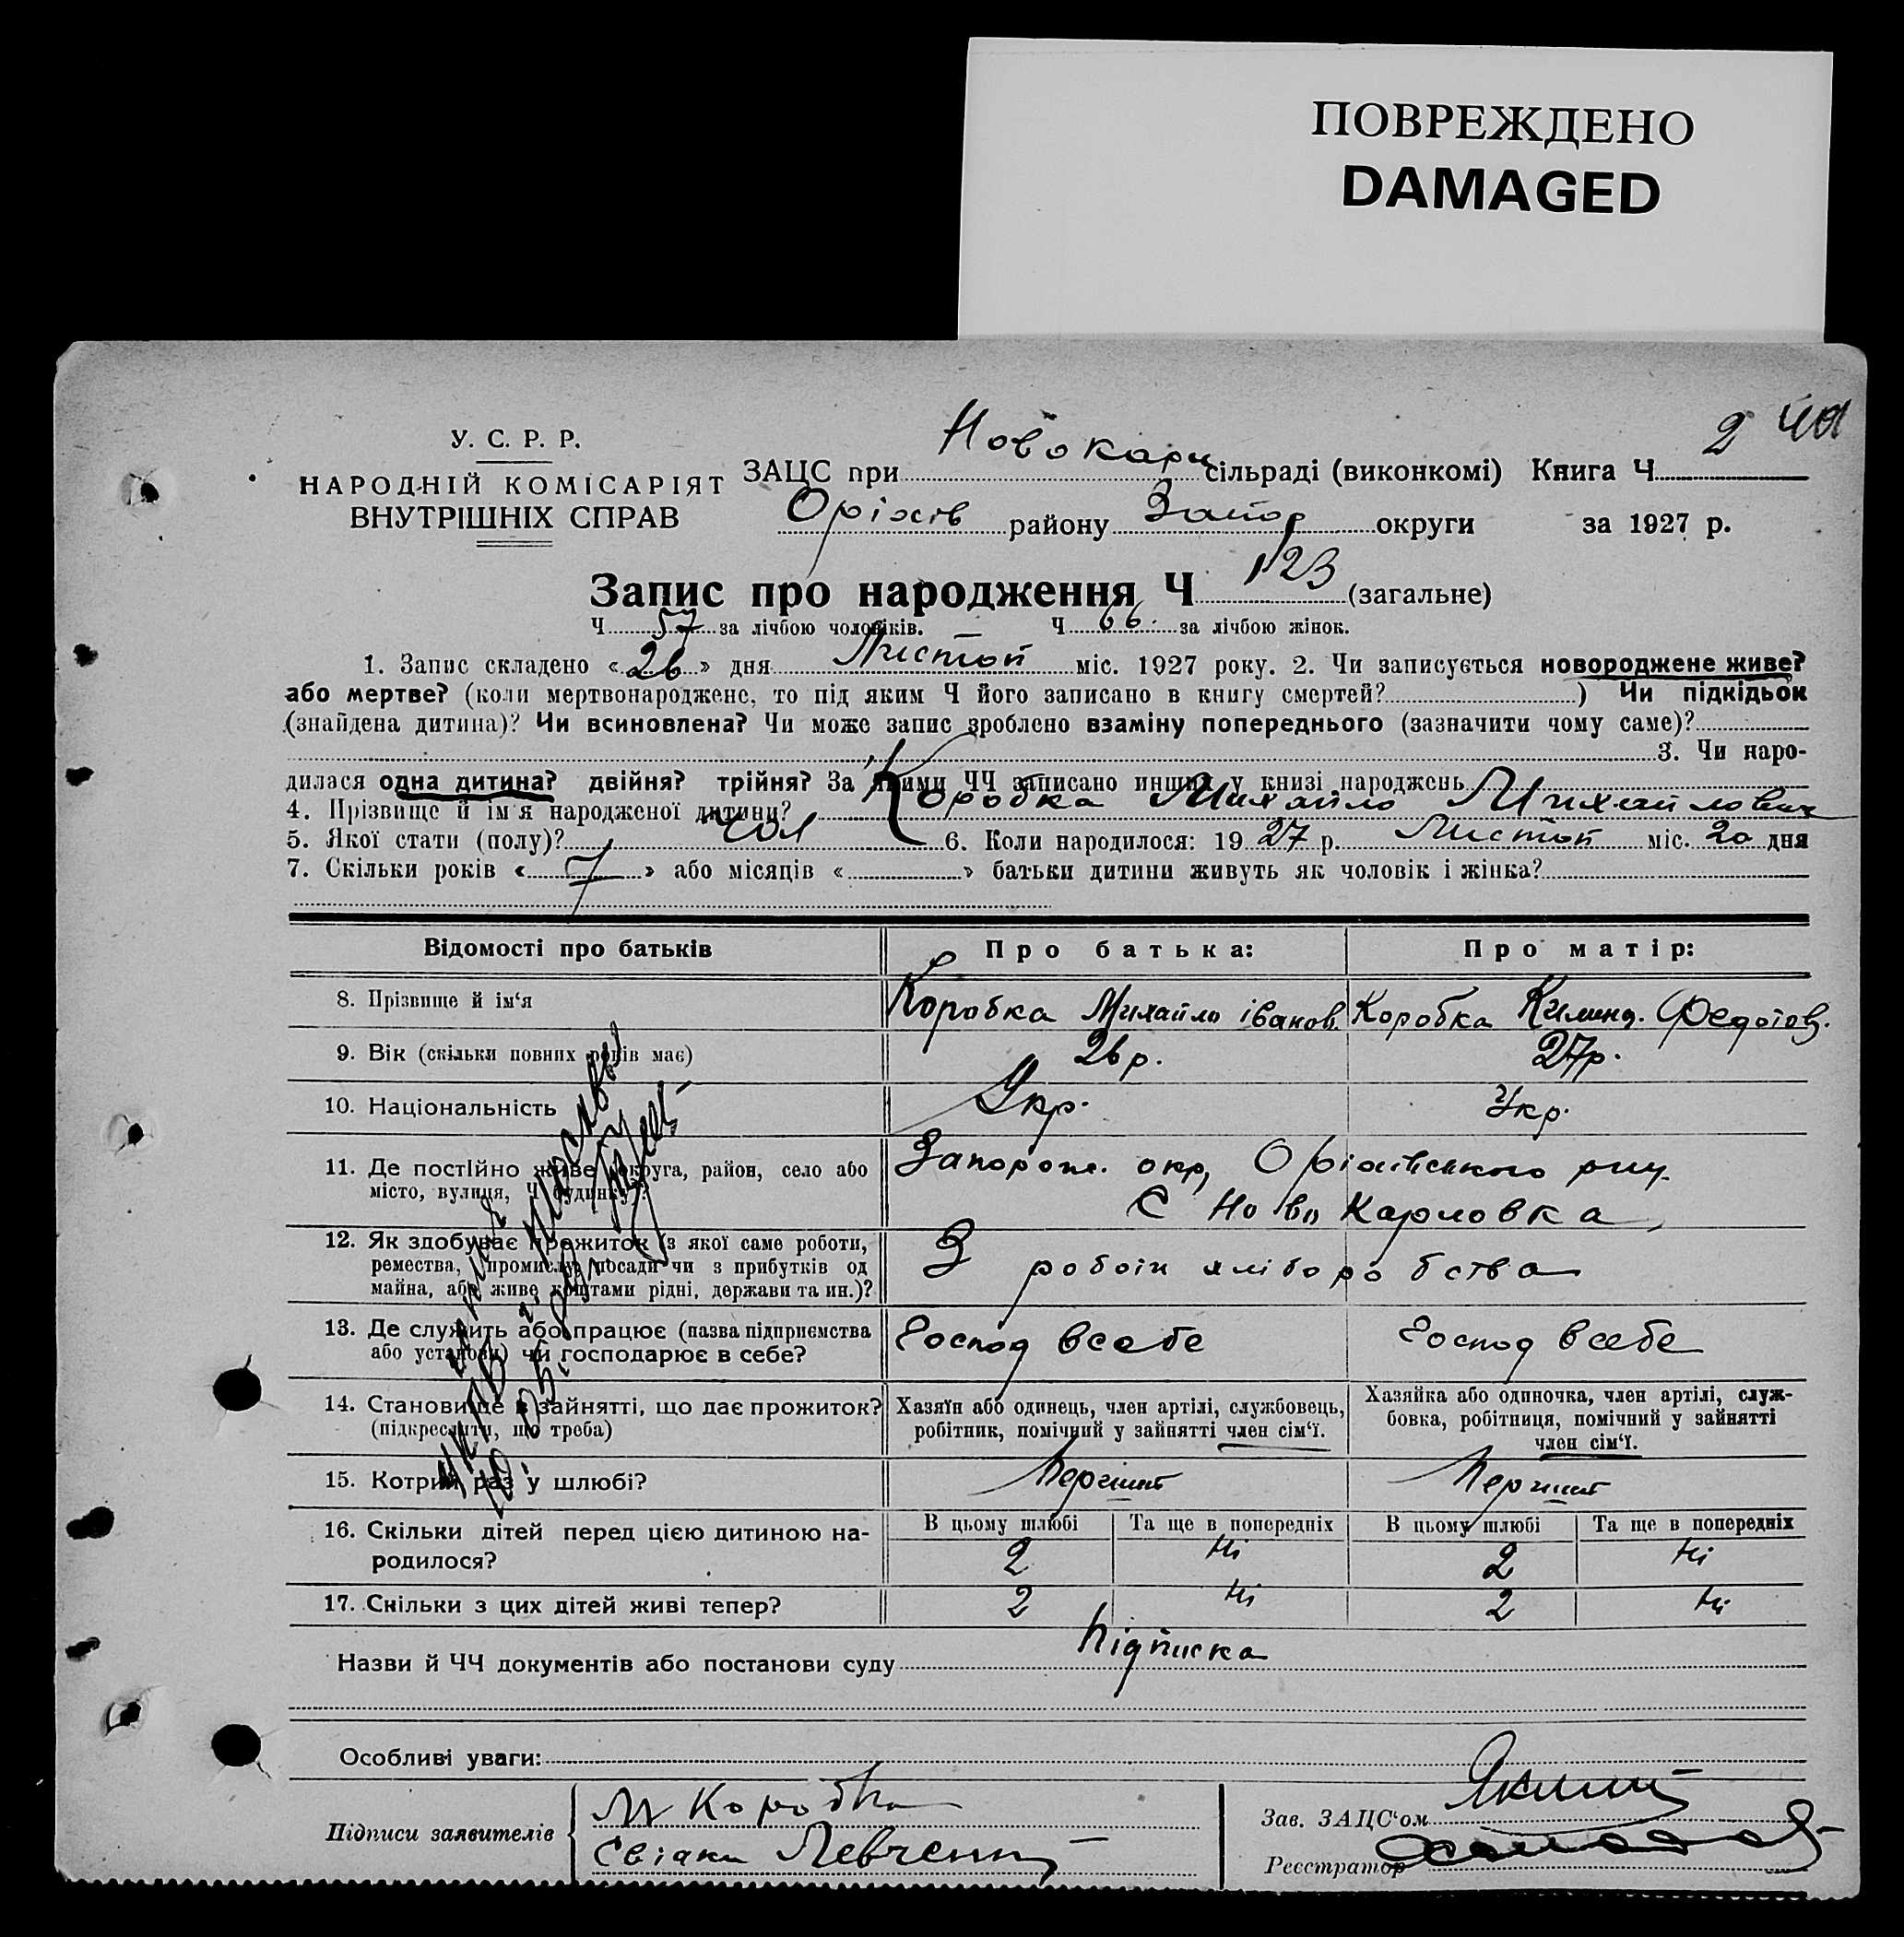 ПОВРЕЖДЕНО
DAMAGED
У. С. Р. Р.
НАРОДНІЙ КОМІСАРІЯТ
ВНУТРІШНІХ СПРАВ
ЗАЦС при Новокарл сільраді (виконкомі) Книга Ч. 2
Оріхів району Запор округи за 1927 р.
Запис про народження Ч 123 (загальне)
Ч 57 за лічбою чоловіків. Ч 66. за лічбою жінок.
1. Запис складено «26» дня Листоп міс. 1927 року. 2. Чи записується новороджене живе?
або мертве? (коли мертвонароджене, то під яким Ч його записано в книгу смертей?) Чи підкідьок
(знайдена дитина)? Чи всиновлена? Чи може запис зроблено взаміну попереднього (зазначити чому саме)?
3. Чи наро-
дилася одна дитина? двійня? трійня? За якими ЧЧ записано инших у книзі народжень
4. Прізвище й ім'я народженої дитини? Коробка Михайло Михайлович
5. Якої стати (полу)? чол 6. Коли народилося: 1927 р. Листоп міс. 20 дня
7. Скільки років «7» або місяців « » батьки дитини живуть як чоловік і жінка?
Відомості про батьків Про батька: Про матір:
8. Прізвище й ім'я Коробка Михайло іванов. Коробка Килина. Федотов.
9. Вік (скільки повних років має) 26 р. 27р.
10. Національність Укр. Укр.
11. Де постійно живе (округа, район, село або Запорож. окр,
місто, вулиця, Ч будинку)? С Ново Карловка
12. Як здобуває прожиток (з якої саме роботи,
ремества, промислу, посади чи з прибутків од З хліборобства
майна, або живе коштами рідні, держави та ин.)?
13. Де служить або працює (назва підприємства Господ всебе Господ всебе
або установи) чи господарює в себе?
14. Становище в зайнятті, що дає прожиток? Хазяїн або одинець, член артілі, службовець, Хазяйка або одиночка, член артілі, служ-
(підкреслити, що треба) робітник, помічний у зайнятті член сім'ї. бовка, робітниця, помічний у зайнятті
член сім'ї.
15. Котрий раз у шлюбі?
16. Скільки дітей перед цією дитиною на- В цьому шлюбі Та ще в попередніх В цьому шлюбі Та ще в попередніх
родилося? 2 ні 2 ні
17. Скільки з цих дітей живі тепер? 2 ні 2 ні
Назви й ЧЧ документів або постанови суду Підписка
Особливі уваги:
Підписи заявителів М Коробка
Свідки Левченко
Зав. ЗАЦС'ом
Реєстратор